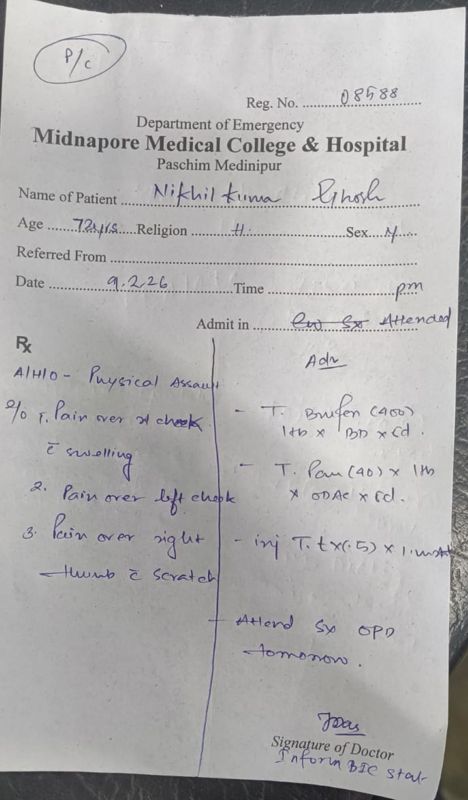 P/C
Reg. No. 08588
Department of Emergency
Midnapore Medical College & Hospital
Paschim Medinipur
Name of Patient Nikhil Kuma Ghosh
Age 72yrs Religion H. Sex M
Referred From
Date 9.2.26 Time pm
Admit in Attended
Rx
A/H/O - Physical Assault
Adv
c/o 1. Pain over rt cheek
c̄ swelling
2. Pain over left cheek
3. Pain over right
thumb c̄ scratch
- T. Brufen (400)
1tb x BD x
- T. Pan (40) x 1tb
x ODAC x
- inj T.t x (.5) x
- Attend Sx OPD
tomorrow.
Signature of Doctor
Inform